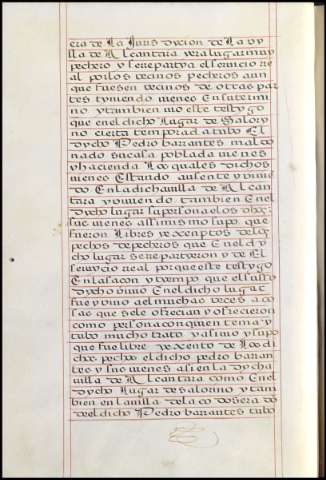 era de La Jurisdycion de La vy
lla de Alcantara yera lugar muy
pechero y serrepartya el seruicio rre
al por los vecinos pecheros aun
que fuesen vecinos de otras par
tes tyniendo vienes En su termi
no y tambien vio este testygo
que en el dicho Lugar de Salory
no cierta temporada tubo El
dycho Pedro barrantes maldo
nado su casa poblada vienes
y hacienda Los quales dichos
vienes Estando ausente y biuien
do En la dicha villa de Alcan
tara y biuiendo tambien En el
dycho lugar su persona el os dichos
sus vienes assimismo supo que
fueron Libres y exsentos de los
pechos de pecheros que En el dy
cho lugar se rrepartyeron y de El
seruycio rreal porque este testygo
En la sacon y tyempo que el susso
dycho biuio En el dicho lugar
fue y vino a el muchas veces a co
sas que se le ofrecian y ofrecieron
como persona con quien tenia y
tubo mucho trato y asi vio y supo
que fue libre y exento de Los di
chos pechos el dicho pedro barran
tes y sus vienes asi en la dycha
villa de Alcantara como En el
dycho Lugar de salorino y tam
bien en la uilla de la codosera do
nde el dicho Pedro barrantes tubo